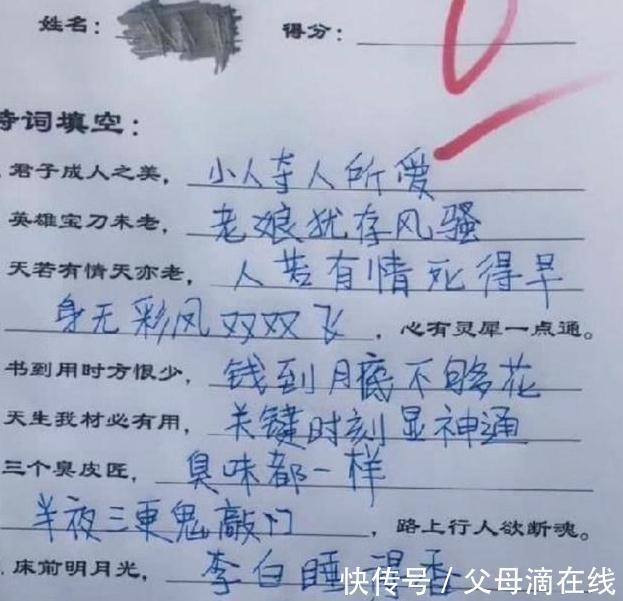 姓名： 得分：
诗词填空：
君子成人之美，小人夺人所爱
英雄宝刀未老，老娘犹存风骚
天若有情天亦老，人若有情死得早
身无彩凤双双飞，心有灵犀一点通。
书到用时方恨少，钱到月底不够花
天生我材必有用，关键时刻显神通
三个臭皮匠，臭味都一样
半夜三更鬼敲门，路上行人欲断魂。
床前明月光，李白睡得香
快传号／父母滴在线